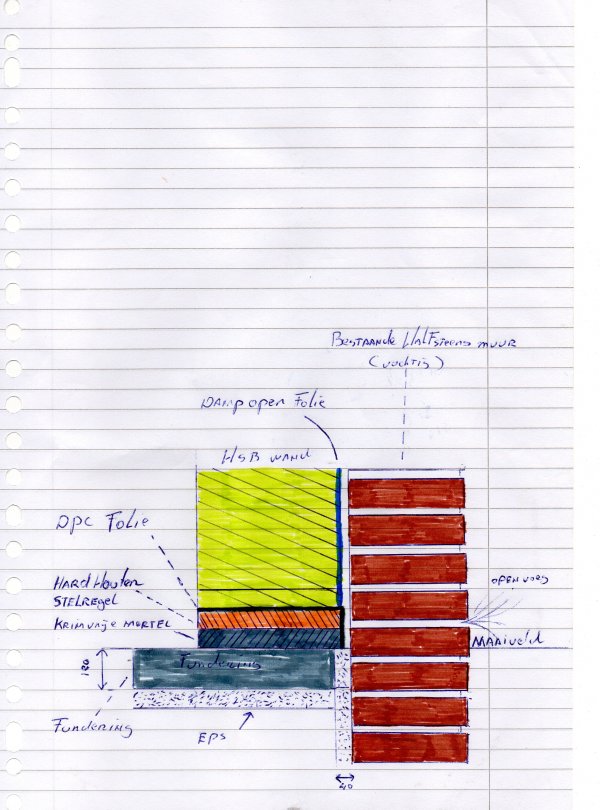 Bestaande Halfsteens muur
(vochtig)
Damp open Folie
HSB wand
DPC Folie
Hard Houten
Stelregel
Krimvrije mortel
open voeg
Maaiveld
Fundering
120
Fundering
EPS
40